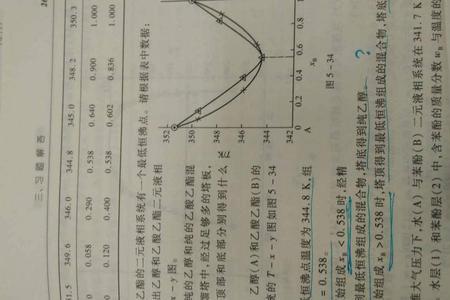 三、习题解答
1.5 349.6 346.0 344.8 345.0 348.2 350.3
0.058 0.290 0.538 0.640 0.900 1.000
0.120 0.400 0.538 0.602 0.836 1.000
乙酯的二元液相系统有一个最低恒沸点。请根据表中数据:
出乙醇和乙酸乙酯二元液相
x-y 图。
纯的乙醇和纯的乙酸乙酯混
馏塔中,经过足够多的塔板,
顶部和底部分别得到什么
乙醇(A)和乙酸乙酯(B)的
统的 T-x-y 图如图 5-34
低恒沸点温度为 344.8 K,组
= 0.538。
352
350
348
346
344
342
A 0.2 0.4 0.6 0.8
xB
图 5-34
始组成 xB < 0.538 时,经精
到最低恒沸组成的混合物,塔底得到纯乙醇。
?
始组成 xB > 0.538 时,塔顶得到最低恒沸组成的混合物,塔底
准大气压力下,水(A)与苯酚(B)二元液相系统在 341.7 K
水层(1)和苯酚层(2)中,含苯酚的质量分数 wB 与温度的